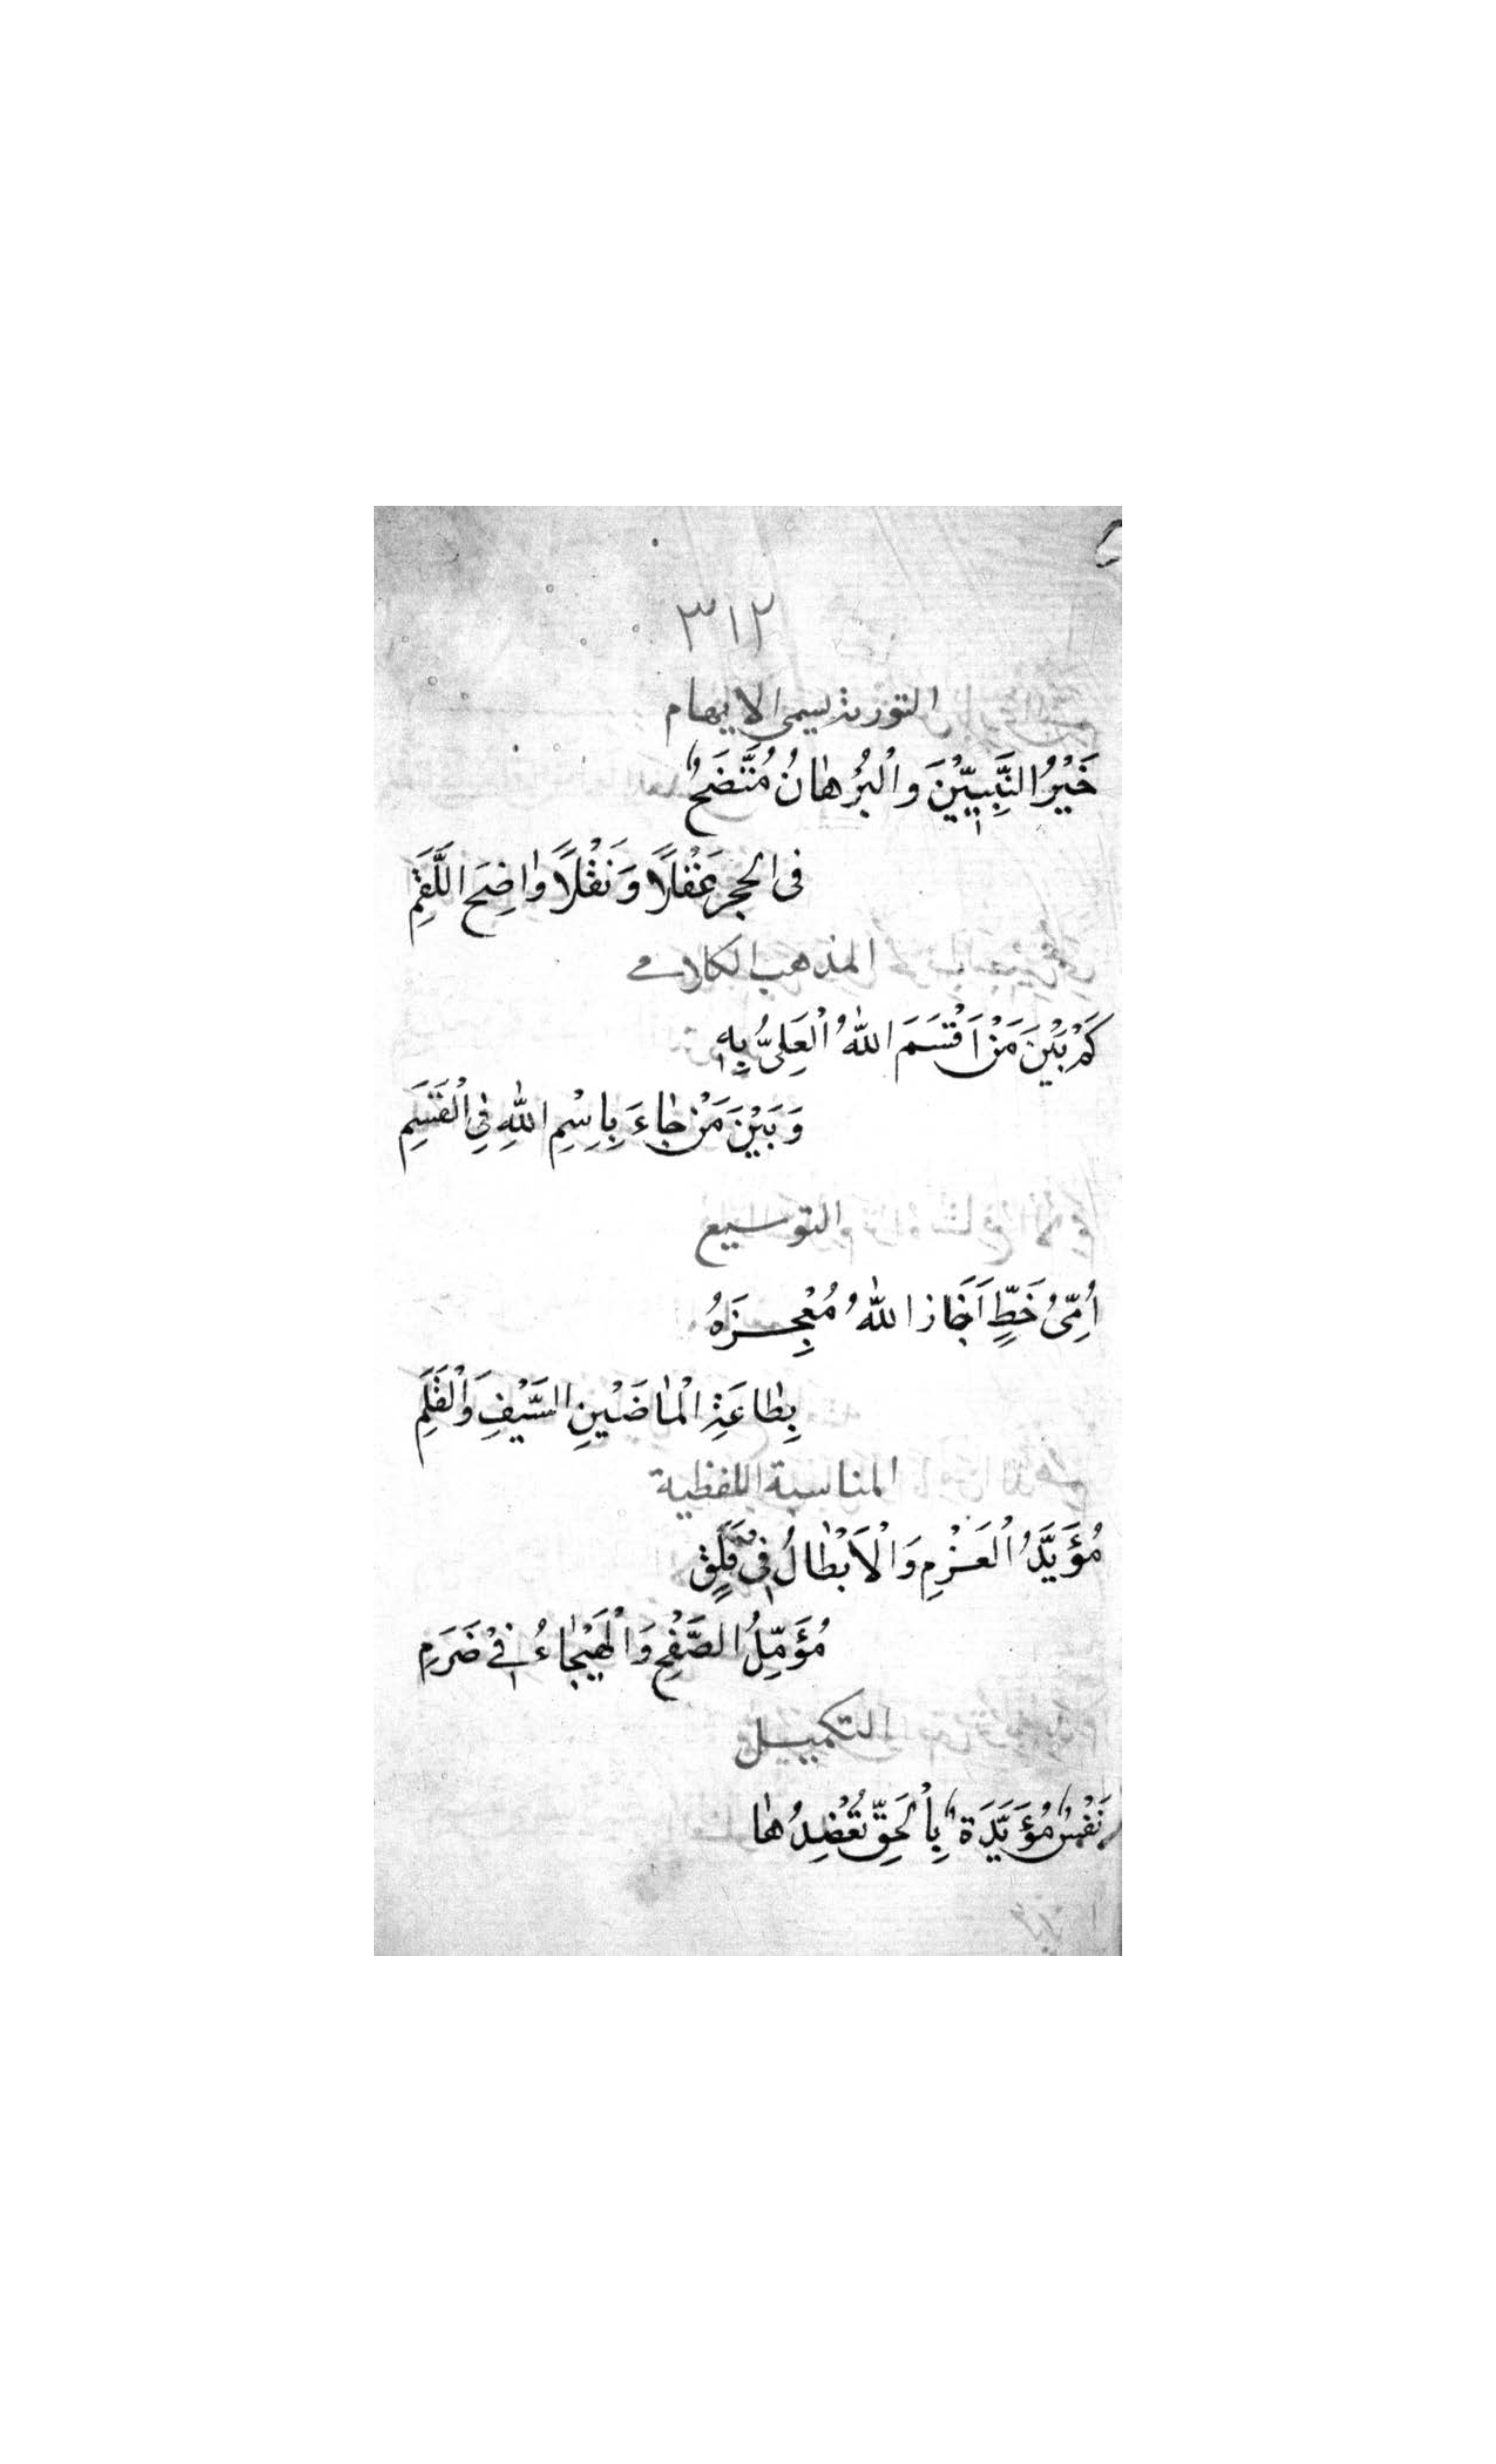 ٣١٢
التورية يسمى الايهام
خَيْرُ النَّبِيّيْنَ وَالْبُرْهٰانُ مُتَّضَحٌ
فى الحجر عَقْلاً وَنَقْلاً وٰاضِحَ اللَّقَمِ
المذهب الكلامے
كَمْ بَيْنَ مَنْ اَقْسَمَ اللّٰهُ الْعَلِىُّ بِهٖ
وَبَيْنَ مَنْ جٰاءَ بِاِسْمِ اللّٰهِ فِى الْقَسَمِ
التوسيع
اُمِّىُّ خَطٍّ اَبٰانَ اللّٰهُ مُعْجِزَهُ
بِطٰاعَةِ الْمٰاضَيْنِ السَّيْفِ وَالْقَلَمِ
المناسبة اللفظية
مُؤَيَّدُ الْعَزْمِ وَالْاَبْطٰالُ فِى قَلَقٍ
مُؤَمِّلُ الصَّفْحِ وَالْهَيْجٰاءُ فِے ضَرَمِ
التكميل
نَفْسٌ مُؤَيَّدَةٌ بِالْحَقِّ تَعْضِدُهٰا